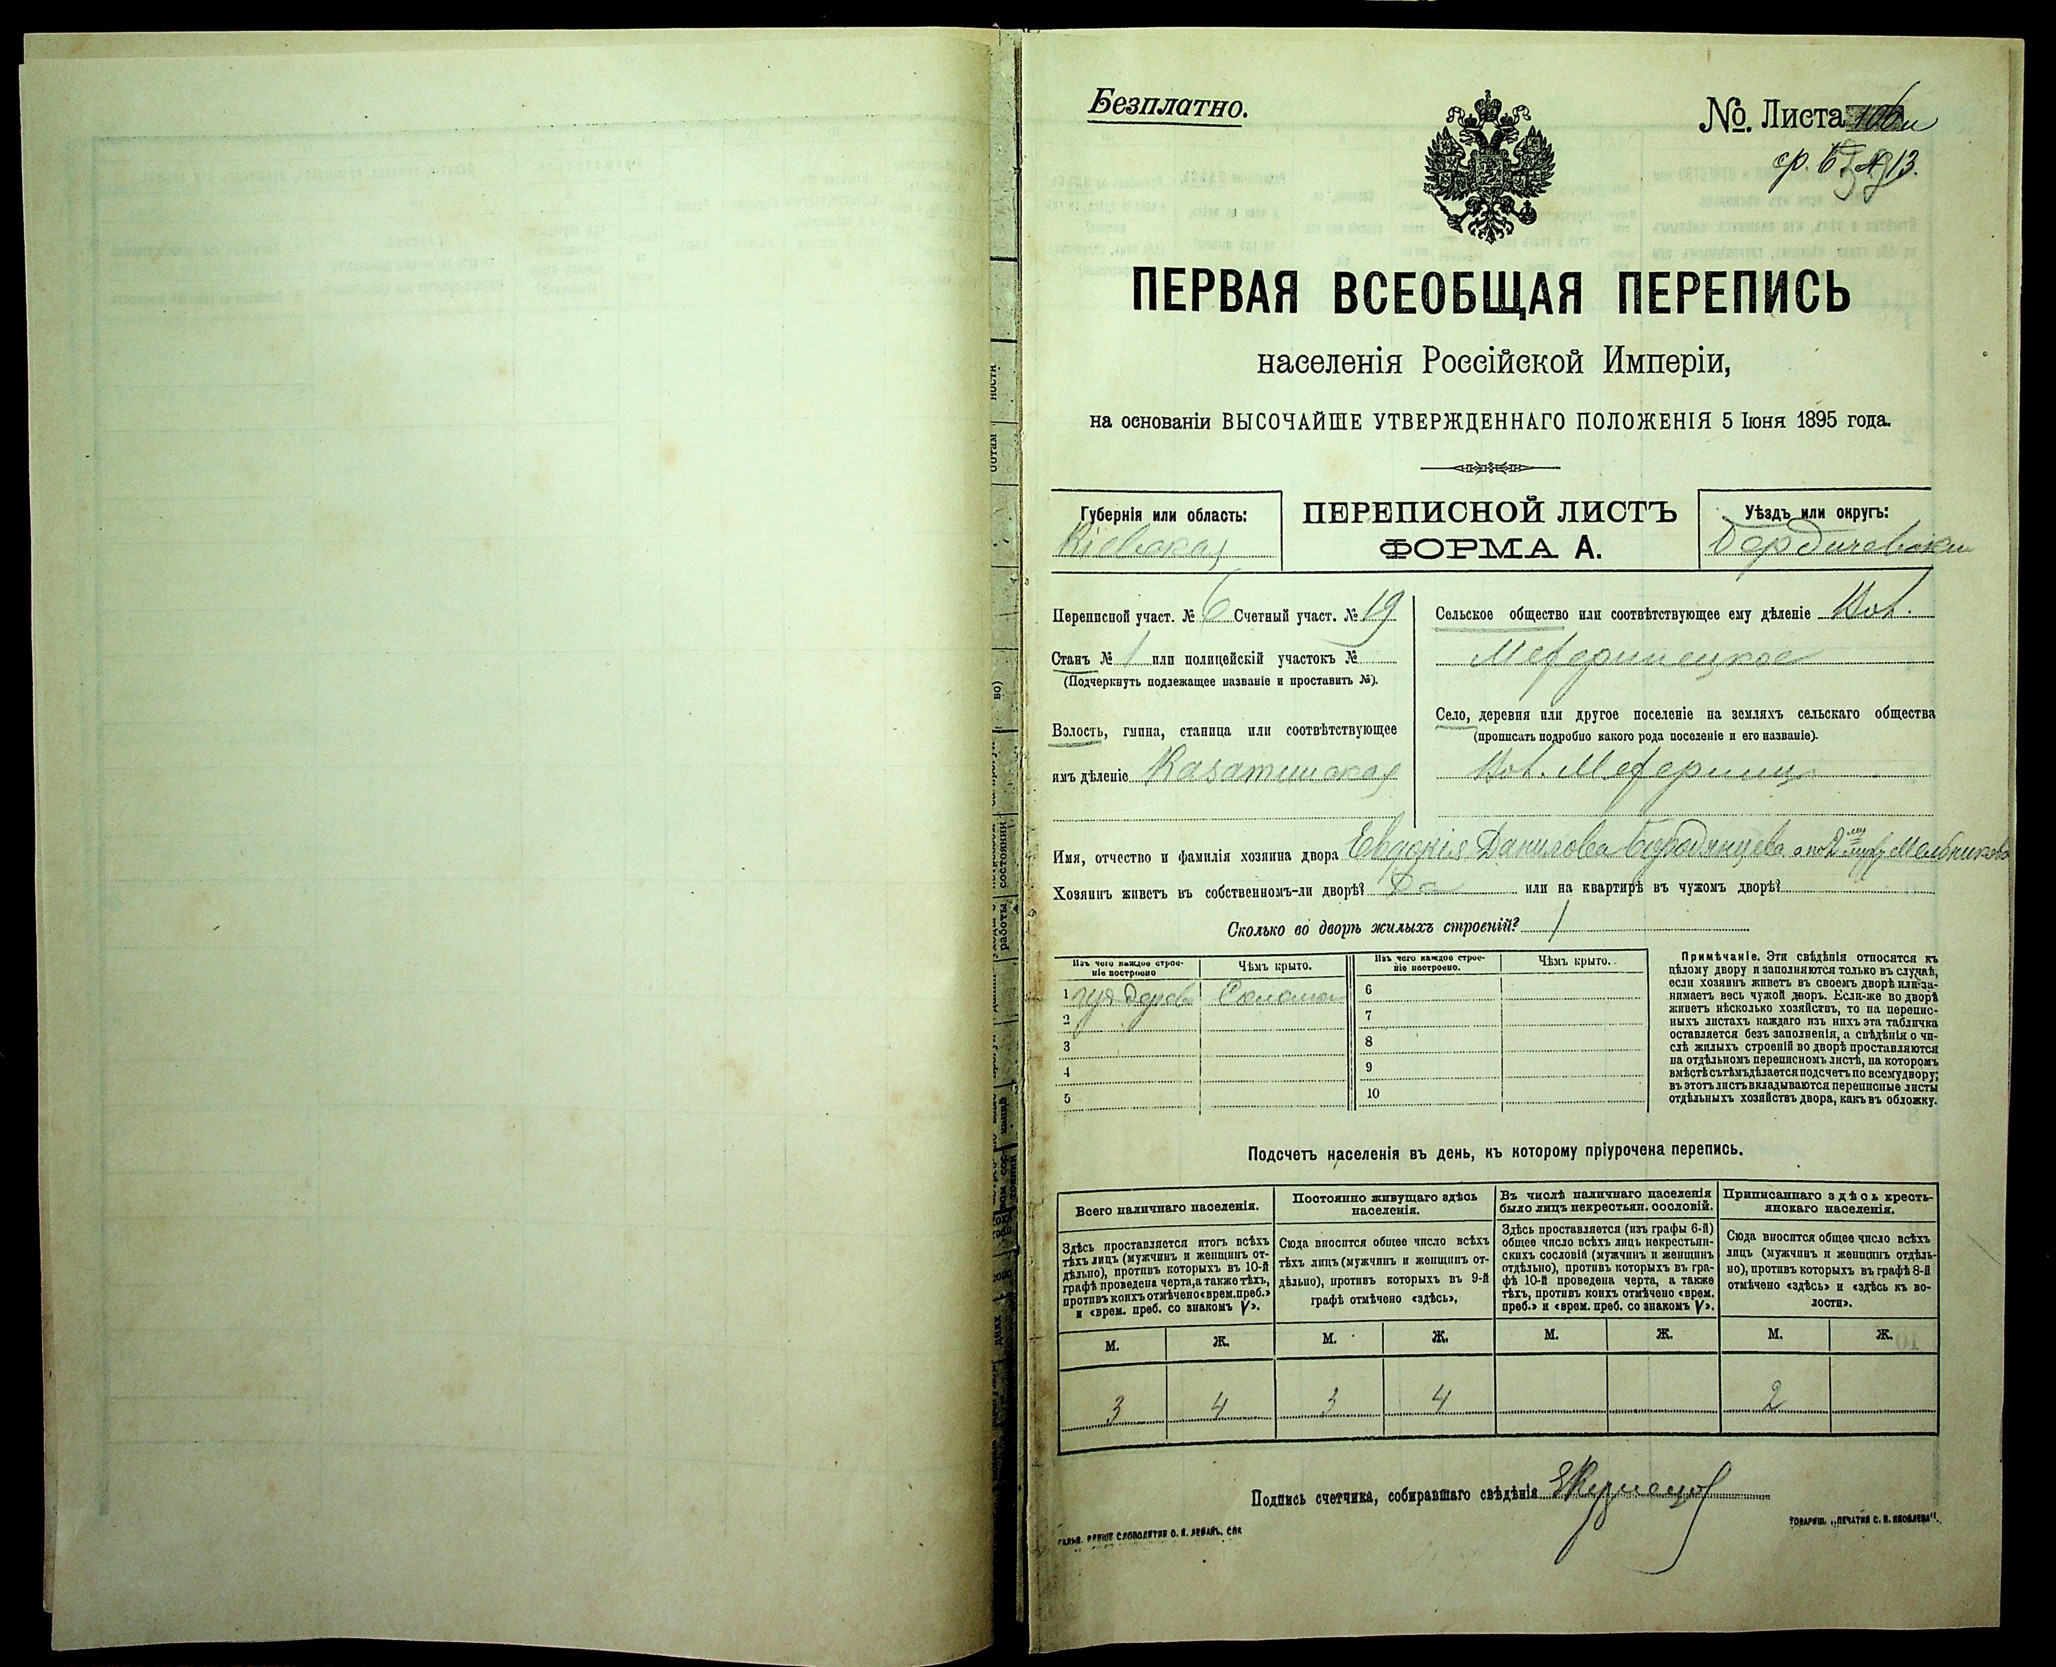 Безплатно.
№. Листа
ПЕРВАЯ ВСЕОБЩАЯ ПЕРЕПИСЬ
населенія Россійской Имперіи,
на основаніи ВЫСОЧАЙШЕ УТВЕРЖДЕННАГО ПОЛОЖЕНІЯ 5 Іюня 1895 года.
Губернія или область:
Кіевская
ПЕРЕПИСНОЙ ЛИСТЪ
ФОРМА А.
Уѣздъ или округъ:
Бердичевскій
Переписной участ. № 6 Счетный участ. № 19
Станъ № 1 или полицейскій участокъ №
(Подчеркнуть подлежащее названіе и проставить №).
Волость, гмина, станица или соотвѣтствующее
имъ дѣленіе Казатинская
Сельское общество или соотвѣтствующее ему дѣленіе
Село, деревня или другое поселеніе на земляхъ сельскаго общества
(прописать подробно какого рода поселеніе и его названіе).
Имя, отчество и фамилія хозяина двора Евдокія Данилова Мельникова
Хозяинъ живетъ въ собственномъ-ли дворѣ? Да или на квартирѣ въ чужомъ дворѣ?
Сколько во дворѣ жилыхъ строеній? 1
Изъ чего каждое строе-
ніе построено
Чѣмъ крыто.
Изъ чего каждое строе-
ніе построено.
Чѣмъ крыто.
1 дерева Соломой
2
3
4
5
6
7
8
9
10
Примѣчаніе. Эти свѣдѣнія относятся къ
цѣлому двору и заполняются только въ случаѣ,
если хозяинъ живетъ въ своемъ дворѣ или за-
нимаетъ весь чужой дворъ. Если-же во дворѣ
живетъ нѣсколько хозяйствъ, то на перепис-
ныхъ листахъ каждаго изъ нихъ эта табличка
оставляется безъ заполненія, а свѣдѣнія о чи-
слѣ жилыхъ строеній во дворѣ проставляются
на отдѣльномъ переписномъ листѣ, на которомъ
вмѣстѣ съ тѣмъ дѣлается подсчетъ по всему двору;
въ этотъ листъ вкладываются переписные листы
отдѣльныхъ хозяйствъ двора, какъ въ обложку.
Подсчетъ населенія въ день, къ которому пріурочена перепись.
Всего наличнаго населенія.
Постоянно живущаго здѣсь
населенія.
Въ числѣ наличнаго населенія
было лицъ некрестьян. сословій.
Приписаннаго здѣсь кресть-
янскаго населенія.
Здѣсь проставляется итогъ всѣхъ
тѣхъ лицъ (мужчинъ и женщинъ от-
дѣльно), противъ которыхъ въ 10-й
графѣ проведена черта, а также тѣхъ,
противъ коихъ отмѣчено «врем. преб.»
и «врем. преб. со знакомъ V».
Сюда вносится общее число всѣхъ
тѣхъ лицъ (мужчинъ и женщинъ от-
дѣльно), противъ которыхъ въ 9-й
графѣ отмѣчено «здѣсь».
Здѣсь проставляется (изъ графы 6-й)
общее число всѣхъ лицъ некрестьян-
скихъ сословій (мужчинъ и женщинъ
отдѣльно), противъ которыхъ въ гра-
фѣ 10-й проведена черта, а также
тѣхъ, противъ коихъ отмѣчено «врем.
преб.» и «врем. преб. со знакомъ V».
Сюда вносится общее число всѣхъ
лицъ (мужчинъ и женщинъ отдѣль-
но), противъ которыхъ въ графѣ 8-й
отмѣчено «здѣсь» и «здѣсь къ во-
лости».
М. Ж. М. Ж. М. Ж. М. Ж.
3 4 3 4 2
Подпись счетчика, собиравшаго свѣдѣнія ЕКузнецов
ТОВАРИЩ. „ПЕЧАТНЯ С. П. ЯКОВЛЕВА".